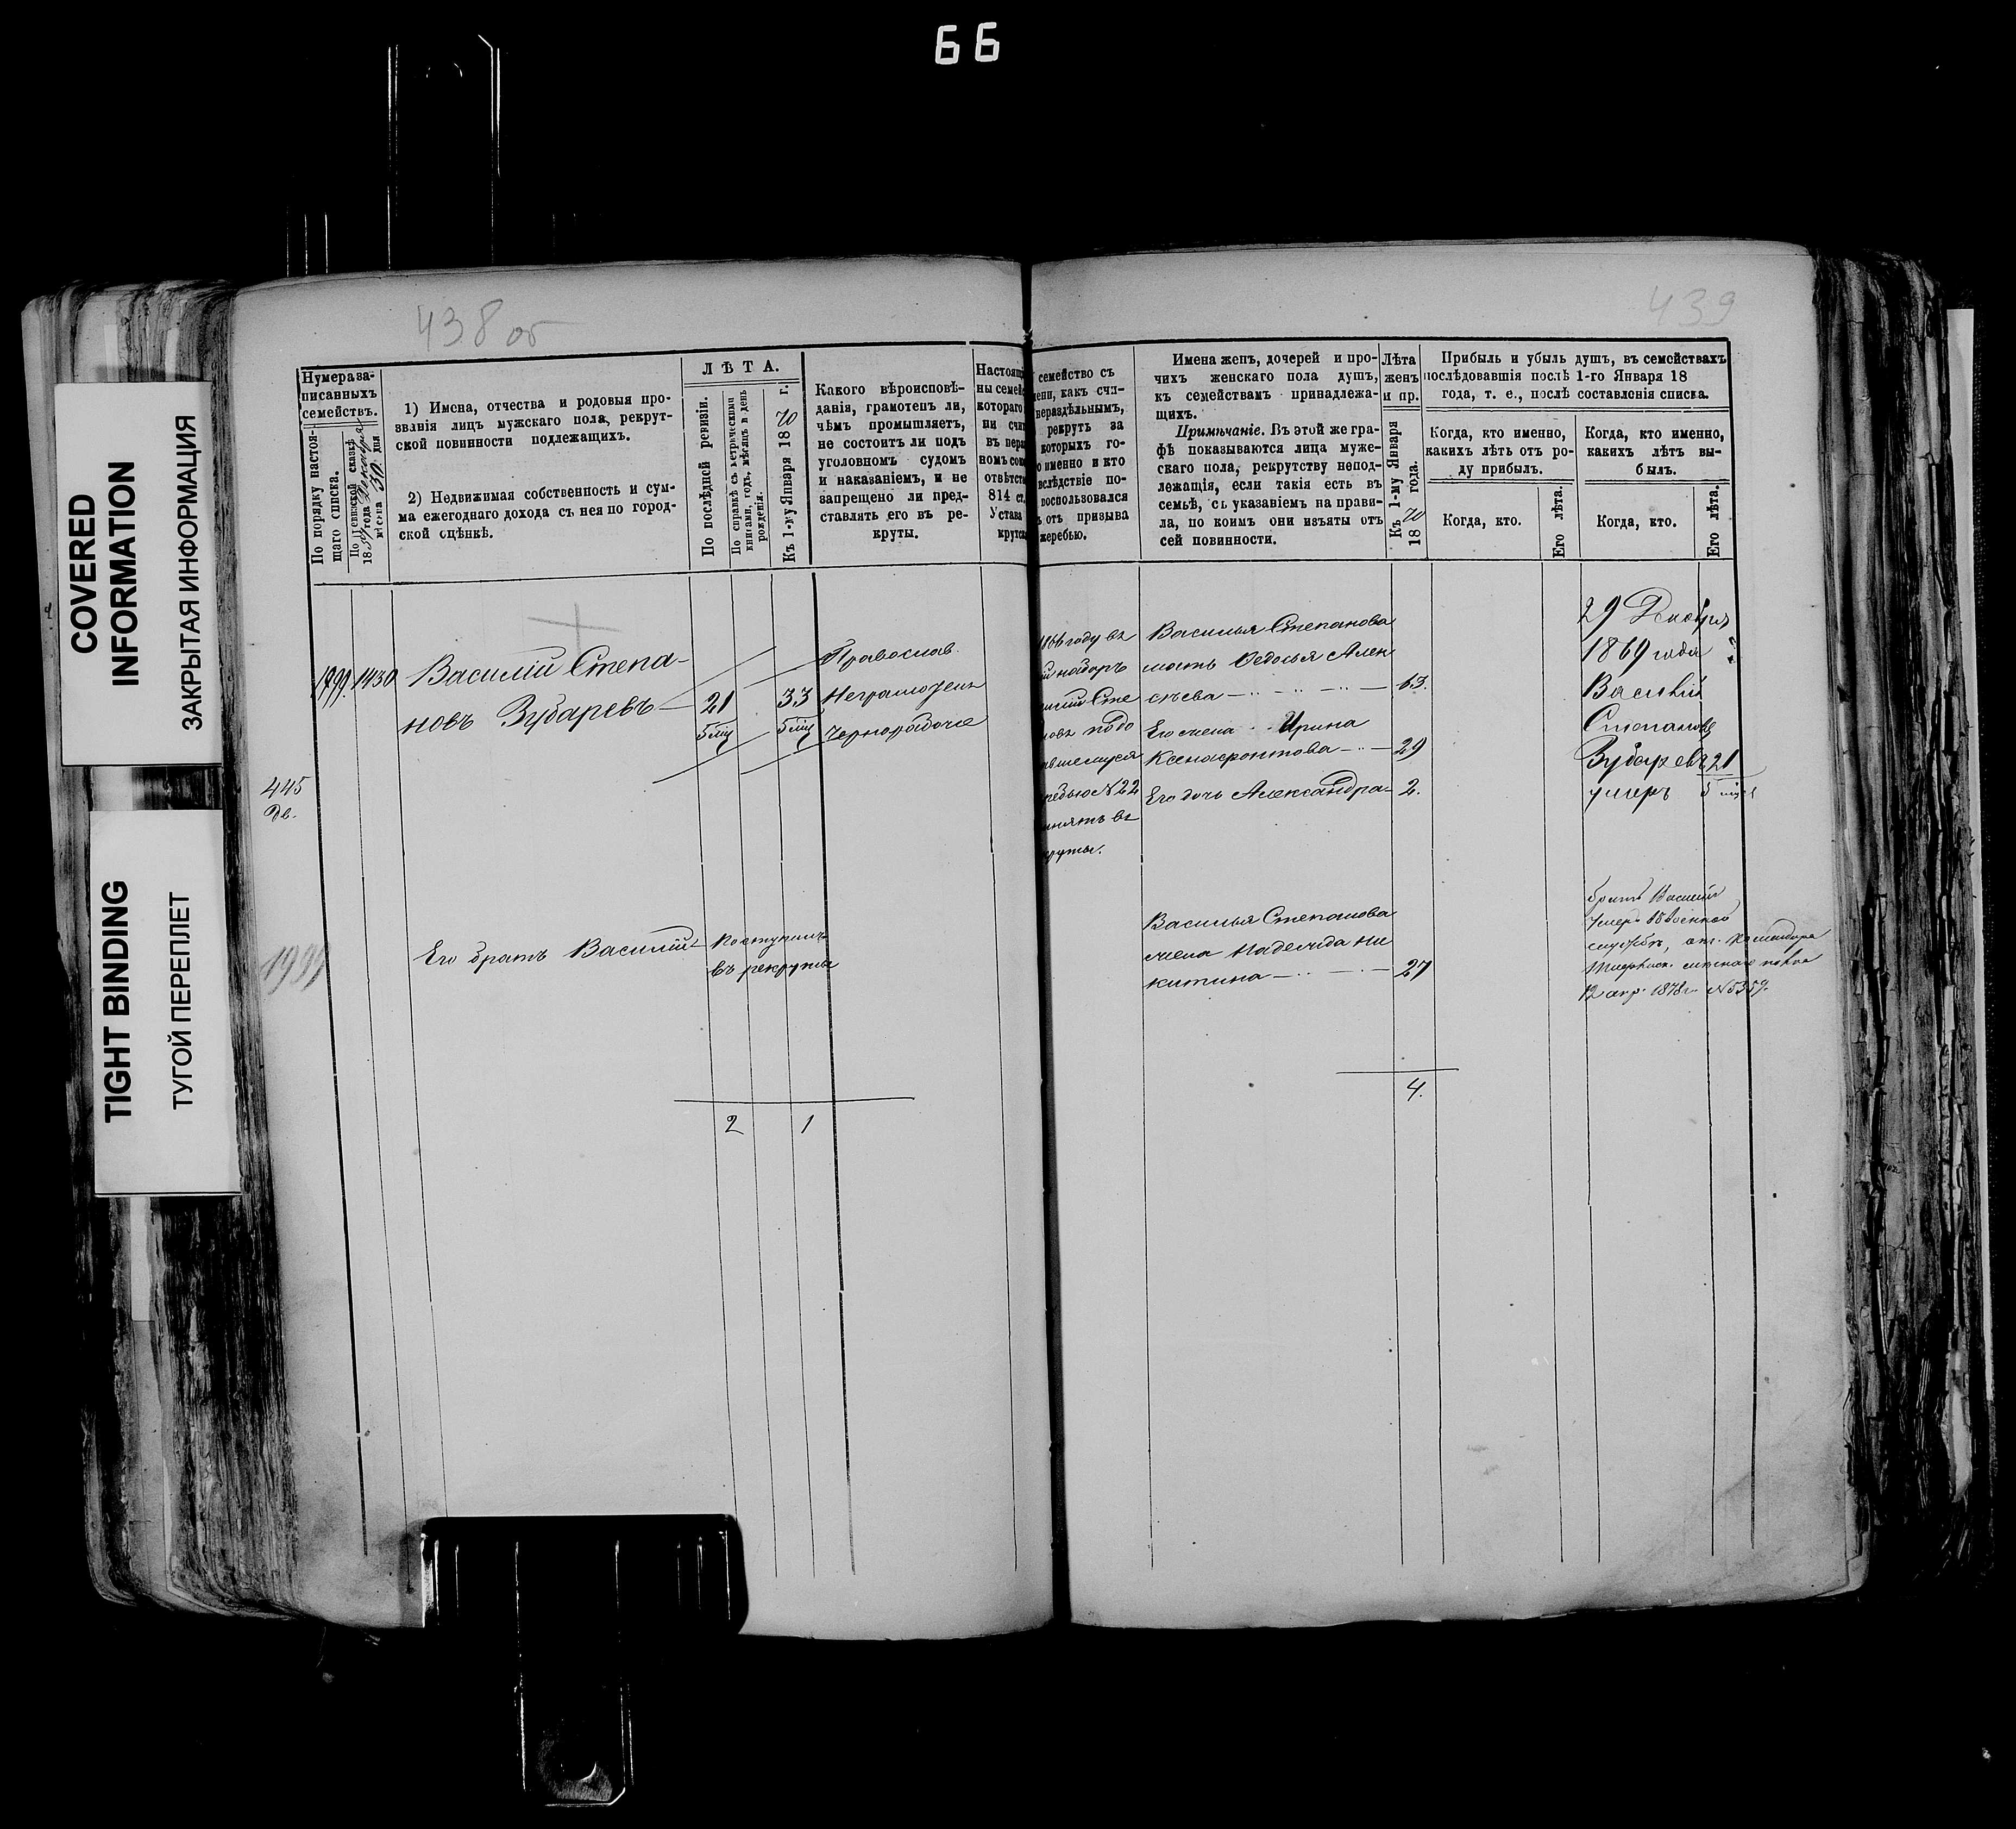 66
COVERED
INFORMATION
ЗАКРЫТАЯ ИНФОРМАЦИЯ
TIGHT BINDING
ТУГОЙ ПЕРЕПЛЕТ
438 об
Нумера за-
писанныхъ
семействъ.
По порядку настоя-
щаго списка.
По ревизской сказкѣ
1859 года Декабря
мѣсяца 30 дня
1) Имена, отчества и родовыя про-
званія лицъ мужскаго пола, рекрут-
ской повинности подлежащихъ.
2) Недвижимая собственность и сум-
ма ежегоднаго дохода съ нея по город-
ской оцѣнкѣ.
ЛѢТА.
По послѣдней ревизіи.
По справкѣ съ метрическими
книгами, годъ, мѣсяцъ и день
рожденія.
Къ 1-му Января 1870 г.
Какого вѣроисповѣ-
данія, грамотенъ ли,
чѣмъ промышляетъ,
не состоитъ ли подъ
уголовномъ судомъ
и наказаніемъ, и не
запрещено ли пред-
ставлять его въ ре-
круты.
Настоящ
ны семей
котораго
ни счит
въ пер
номъ сов
отвѣтст
814 ст.
Устава
крутск
1999 1430 Василій Степа-
новъ Зубаревъ
21
5 міц
33
5 міц
Православ.
Неграмотенъ
Чернорабоч
445
Дв.
1999
Его братъ Василій
Поступилъ
въ рекруты
2 1
439
семейство съ
мени, какъ счи-
нераздѣльнымъ,
рекрутъ за
которыхъ го-
о именно и кто
вслѣдствіе по-
воспользовался
ъ отъ призыва
жеребью.
Имена женъ, дочерей и про-
чихъ женскаго пола душъ,
къ семействамъ принадлежа-
щихъ.
Примѣчаніе. Въ этой же гра-
фѣ показываются лица муже-
скаго пола, рекрутству непод-
лежащія, если такія есть въ
семьѣ, съ указаніемъ на прави-
ла, по коимъ они изъяты отъ
сей повинности.
Лѣта
женъ
и пр.
Къ 1-му Января
1870 года.
Прибыль и убыль душъ, въ семействахъ
послѣдовавшія послѣ 1-го Января 18
года, т. е., послѣ составленія списка.
Когда, кто именно,
какихъ лѣтъ отъ ро-
ду прибылъ.
Когда, кто именно,
какихъ лѣтъ вы-
былъ.
Когда, кто.
Его лѣта.
Когда, кто.
Его лѣта.
1866 году въ
й наборъ
силій Сте
новъ по до
авшемуся
ребью №22
инятъ въ
круты.
Василья Степанова
мать Федосья Алек
сѣева 63.
Его жена Ирина
Ксенофонтова 29
Его дочь Александра 2.
Василья Степанова
жена Надежда Ни
китина 27
4.
29 Декабря
1869 года
Василій
Степановъ
Зубаревъ 21
умеръ 5
братъ Василій
умеръ въ военной
службѣ, от. Командира
полка
12 апр. 1878 г. №5359.